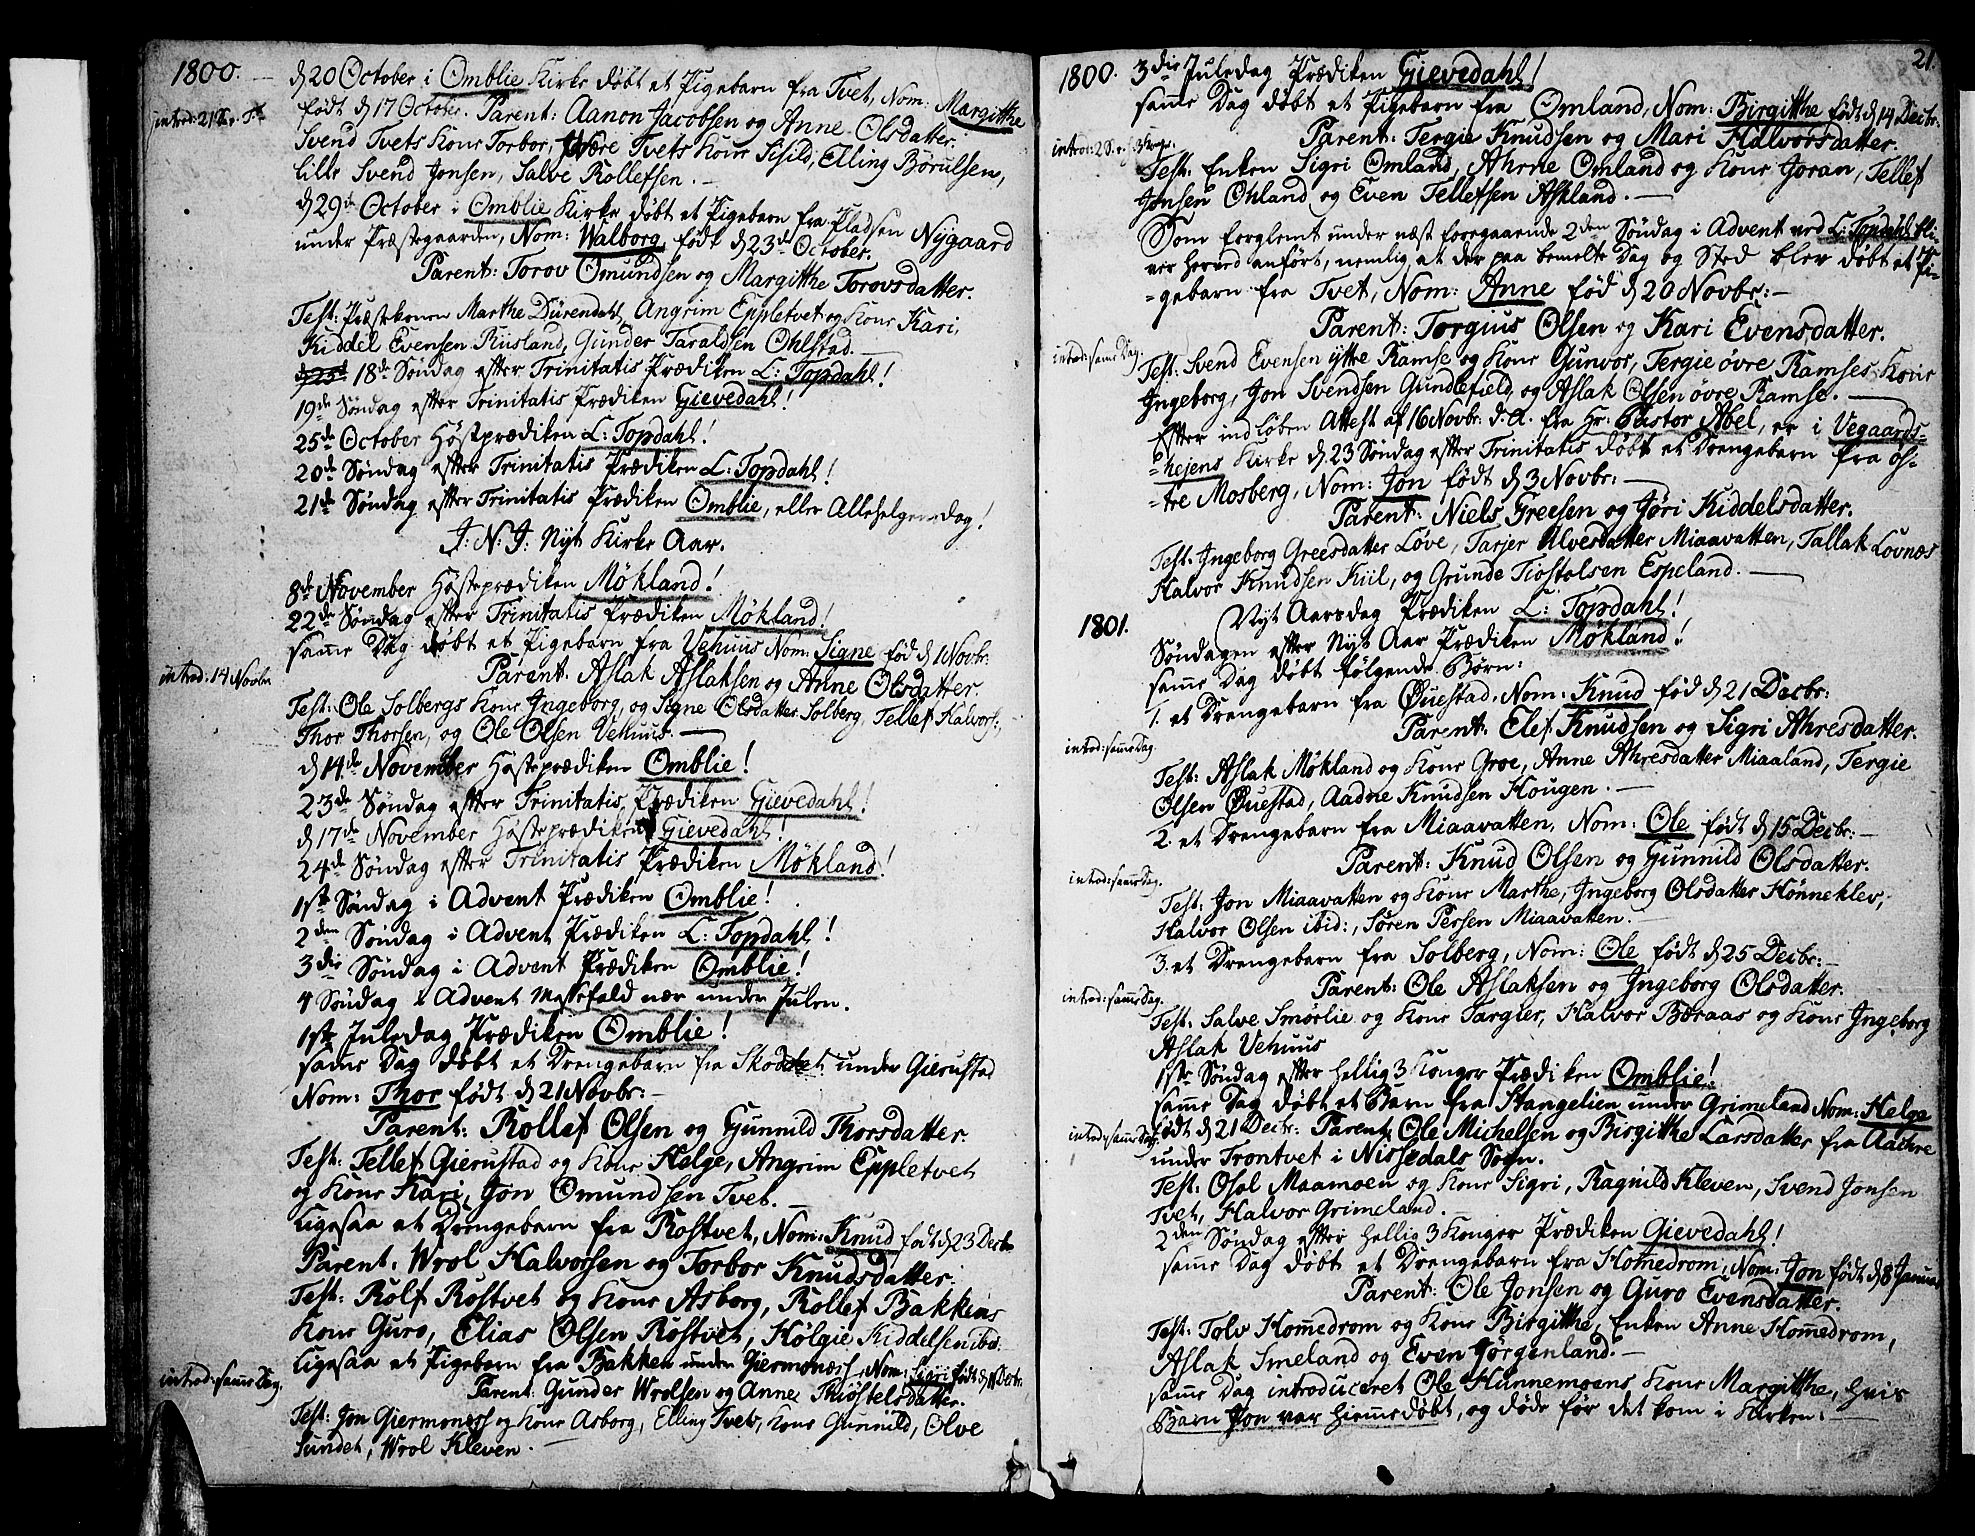 1800.
d 20 October i Omblie Kirke døbt et Pigebarn fra Tvet, Nom: Margitthe
født d 17 October. Parent: Aanon Jacobsen og Anne Olsdatter.
Svend Tvets Kone Torbor, Tvets Kone Sisild, Elling Børulsen,
lille Svend Jonsen, Salve Rollefsen.
d 29de October i Omblie Kirke døbt et Pigebarn fra Pladsen Nygaard
under Præstegaarden, Nom: Walborg født d 23de October.
Parent: Torov Omundsen og Margitthe Torovsdatter.
Test: Præstkonen Marthe Dürendahl, Angrim Eppletvet og Kone Kari,
Kiddel Evensen Riisland, Gunder Taraldsen Ohlstad.
18de Søndag efter Trinitatis Prædiken L: Topdahl!
19de Søndag efter Trinitatis Prædiken Gievedahl!
25de October Høstprædiken L: Topdahl!
20de Søndag efter Trinitatis Prædiken L: Topdahl!
21de Søndag efter Trinitatis Prædiken Omblie, eller Allehelgensdag!
J: N: J: Nyt Kirke Aar.
8de November Høsteprædiken Møkland!
22de Søndag efter Trinitatis Prædiken Møkland!
samme Dag døbt et Pigebarn fra Vehuus Nom: Signe fød d 1 Novbr:
introd: 14 Novbr
Parent: Aslak Aslaksen og Anne Olsdatter.
Test: Ole Solbergs Kone Ingeborg, og Signe Olsdatter Solberg, Tellef Halvors:,
Thor Thorsen, og Ole Olsen Vehuus.
d 14de November Høsteprædiken Omblie!
23de Søndag efter Trinitatis, Prædiken Gievedahl!
d 17de November Høsteprædiken Gievedahl!
24de Søndag efter Trinitatis Prædiken Møkland!
1ste Søndag i Advent Prædiken Omblie!
2den Søndag i Advent Prædiken L: Topdahl!
3die Søndag i Advent Prædiken Omblie!
4 Søndag i Advent Messefald nær under Julen.
1ste Juledag Prædiken Omblie!
samme Dag døbt et Drengebarn fra under Gierustad
Nom: Thor født d 21 Novbr:
Parent: Rollef Olsen og Gunnild Thorsdatter.
Test: Tellef Gierustad og Kone Helge, Angrim Eppletvet
og Kone Kari, Jon Omundsen Tvet.
ligesaa et Drengebarn fra Rostvet, Nom: Knud født d 23 Decbr
Parent: Wrol Halvorsen og Torbor Knudsdatter.
Test: Rolf Rostvet og Kone Asborg, Rollef Bakkens
Kone Guro, Elias Olsen Rostvet, Hølgie Kiddelsen ibid:
ligesaa et Pigebarn fra Bakken under Giermonæss, Nom: Sigri født d Decbr:
introd: samme Dag.
Parent: Gunder Wrolsen og Anne Thiøstelsdatter.
Test: Jon Giermonæss og Kone Asborg, Elling Tvets, Kone Gunnild, Olve
Sundet, Wrol Kleven.
21.
1800. 3die Juledag Prædiken Gievedahl!
samme Dag døbt et Pigebarn fra Omland, Nom: Birgitthe født d 14 Decbr:
Parent: Tergie Knudsen og Mari Halvorsdatter.
Test: Enken Sigri Omland, Ahrne Omland og Kone Joran, Tellef
Jonsen Ohland og Even Tellefsen Askland.
Som forglemt under næst foregaaende 2den Søndag i Advent ved L: Topdahl bli-
ver herved anført, nemlig at der paa bemelte Dag og Sted blev døbt et Pi-
=gebarn fra Tvet, Nom: Anne fød d 20 Novbr:
Parent: Torgius Olsen og Kari Evensdatter.
introd: samme Dag.
Test: Svend Evensen ytre Ramse og Kone Gunvor, Tergie øvre Ramses Kone
Ingeborg, Jon Svendsen Gundlefield, og Aslak Olsen øvre Ramse.
Efter indløben Attest af 16 Novbr: d. A. fra Hr: Pastor Abel, er i Vegaards-
=hejens Kirke d. 23 Søndag efter Trinitatis døbt et Drengebarn fra øs-
=tre Mosberg, Nom: Jon født d 3 Novbr:
Parent: Niels Greesen og Jøri Kiddelsdatter.
Test: Ingeborg Greesdatter Løve, Tarjer Alvesdatter Miaavatten, Tallak Lovnæs
Halvor Knudsen Kiil, og Grunde Tiostolsen Espeland.
1801.
Nyt Aarsdag Prædiken L: Topdahl!
Søndagen efter Nyt Aar Prædiken Møkland!
samme Dag døbt følgende Børn:
1. et Drengebarn fra Øuestad, Nom: Knud fød d 21 Decbr:
Parent: Elef Knudsen og Sigri Ahresdatter.
introd: samme Dag.
Test: Aslak Møkland og Kone Groe, Anne Ahresdatter Miaaland, Tergie
Olsen Øuestad, Aadne Knudsen Hougen.
2. et Drengebarn fra Miaavatten, Nom: Ole født d 15 Decbr:
Parent: Knud Olsen og Gunnild Olsdatter.
introd: samme Dag.
Test: Jon Miaavatten og Kone Marthe, Ingeborg Olsdatter Hønneklev,
Halvor Olsen ibid:, Søren Persen Miaavatten.
3. et Drengebarn fra Solberg, Nom: Ole født d 25 Decbr:
Parent: Ole Aslaksen og Ingeborg Olsdatter.
introd: samme Dag.
Test: Salve Smørlie og Kone Targier, Halvor Baraas og Kone Ingeborg
Aslak Vehuus
1ste Søndag efter hellig 3 Konger Prædiken Omblie!
samme Dag døbt et Barn fra Stangelien under Grimeland Nom: Helge
introd: samme Dag.
født d 21 Decbr: Parent: Ole Michelsen og Birgitthe Larsdatter fra
under Trontvet i Nissedals Sogn.
Test: Osol Maamoen og Kone Sigri, Ragnild Kleven, Svend Jonsen
Tvet, Halvor Grimeland.
2den Søndag efter hellig 3 Konger Prædiken Gievedahl!
samme Dag døbt et Drengebarn fra Homedrom, Nom: Jon født d 8 Januar
Parent: Ole Jonsen og Guro Evensdatter.
Test: Tolv Homedrom og Kone Birgitthe, Enken Anne Homedrom,
Aslak Smeland og Even Jørgenland.
samme Dag introduceret Ole Hunnemoens Kone Margitthe, hvis
Barn Jon var hiemmedøbt, og døde før det kom i Kirken: